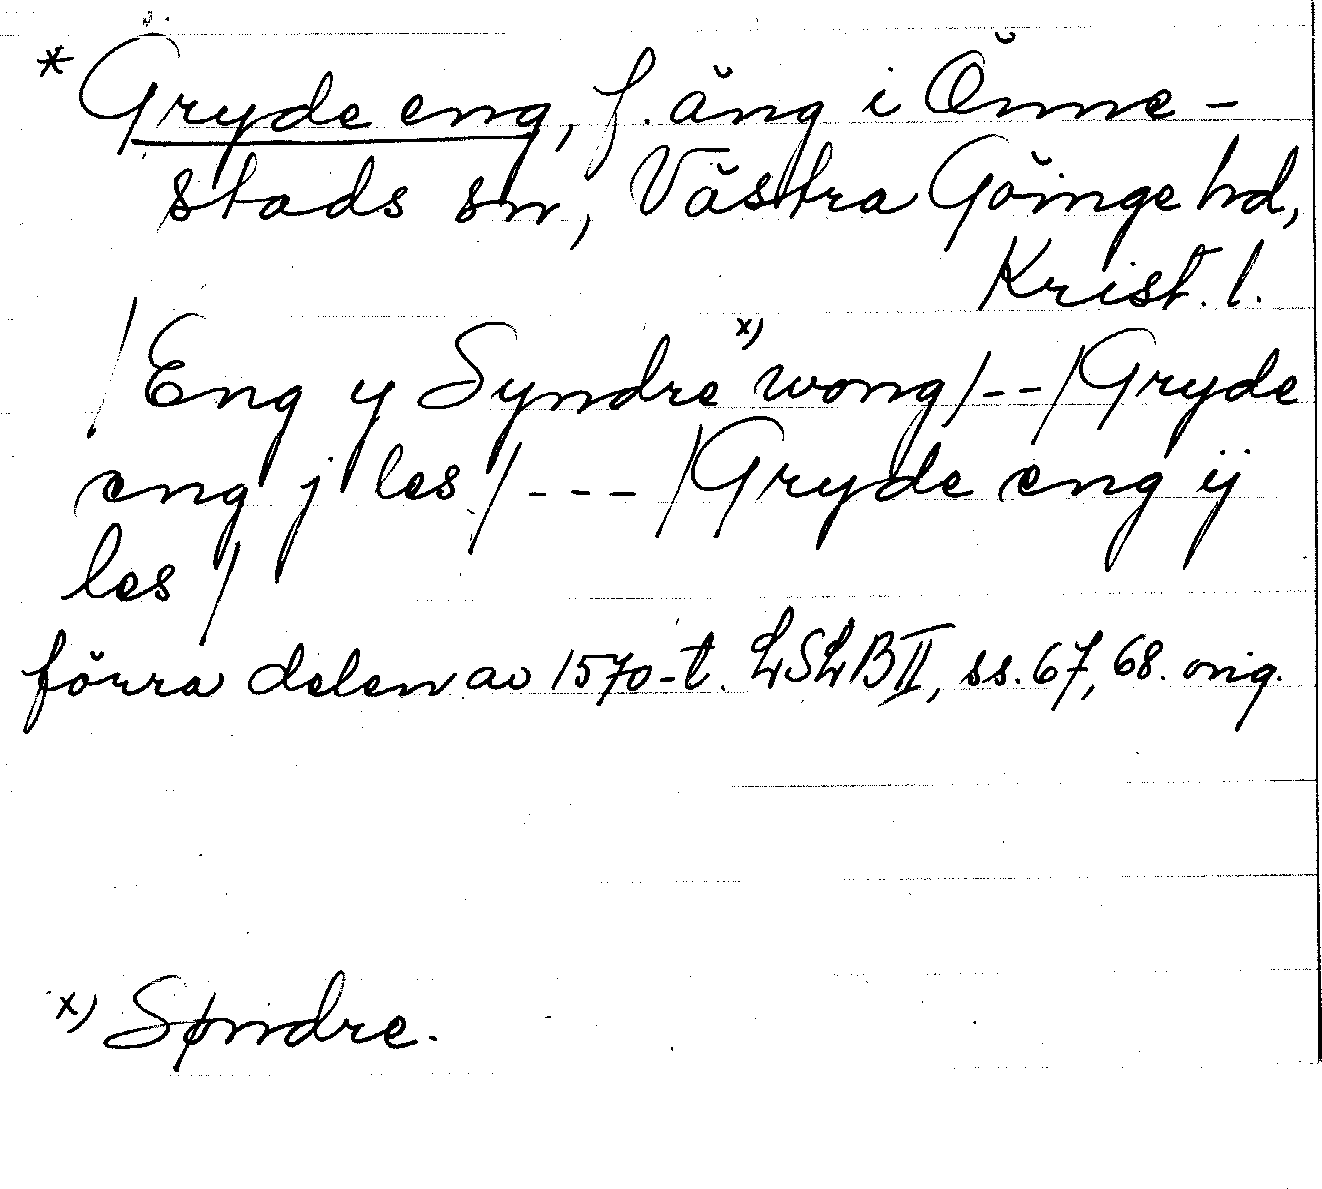 * Gryde eng, f. äng i Önne-
stads sn, Västra Göinge hd,
Krist. l.
/Eng y Syndre x) wong/--/Gryde
eng j les/---/Gryde eng ij
les/
förra delen av 1570-t. LSLB II, ss. 67, 68. orig.
x) Søndre.